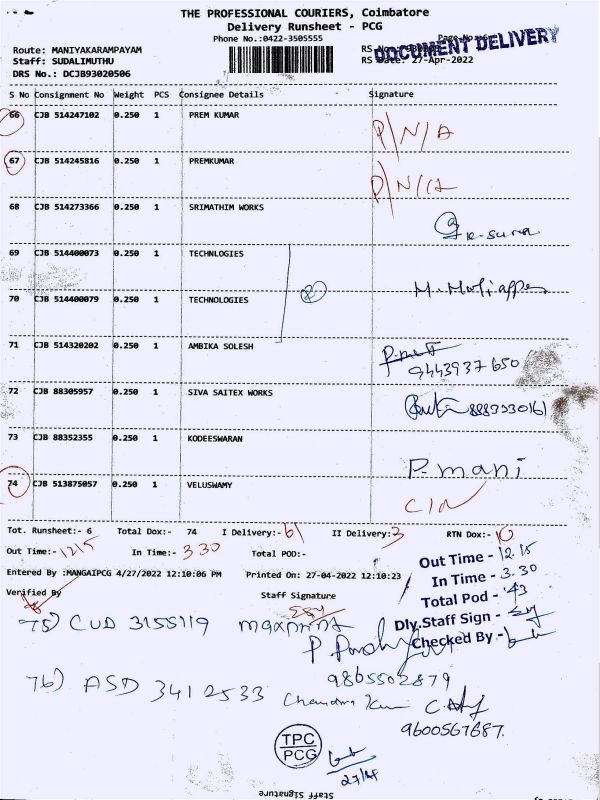 THE PROFESSIONAL COURIERS, Coimbatore
Delivery Runsheet - PCG
Phone No.:0422-3505555
Page No.:6
DOCUMENT DELIVERY
Route: MANIYAKARAMPAYAM
Staff: SUDALIMUTHU
RS Date: 27-Apr-2022
DRS No.: DCJB93020506
S No Consignment No Weight PCS Consignee Details Signature
66 CJB 514247102 0.250 1 PREM KUMAR P/N/A
67 CJB 514245816 0.250 1 PREMKUMAR P/N/A
68 CJB 514273366 0.250 1 SRIMATHIM WORKS
69 CJB 514400073 0.250 1 TECHNLOGIES
70 CJB 514400079 0.250 1 TECHNOLOGIES
71 CJB 514320202 0.250 1 AMBIKA SOLESH
9443937650
72 CJB 88305957 0.250 1 SIVA SAITEX WORKS
73 CJB 88352355 0.250 1 KODEESWARAN P. mani
74 CJB 513875057 0.250 1 VELUSWAMY
Tot. Runsheet:- 6 Total Dox:- 74 I Delivery:- 61 II Delivery: 3 RTN Dox:- 10
Out Time:- 1215 In Time:- 3.30 Total POD:-
Entered By :MANGAIPCG 4/27/2022 12:10:06 PM Printed On: 27-04-2022 12:10:23
Verified By Staff Signature
Out Time - 12.15
In Time - 3.30
Total Pod - 43
Dly.Staff Sign -
Checked By -
75) CUD 3155119 maxprint
9865502879
76) ASD 3412533
9600567687.
TPC
PCG
27/4
Staff Signature